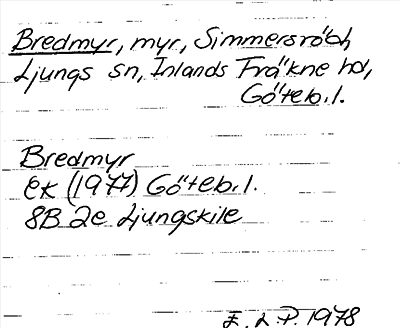 Bredmyr, myr, Simmersröd,
Ljungs sn, Inlands Fräkne hd,
Göteb. l.
Bredmyr
ek (1977) Göteb. l.
8B 2e Ljungskile
E. L. P. 1978